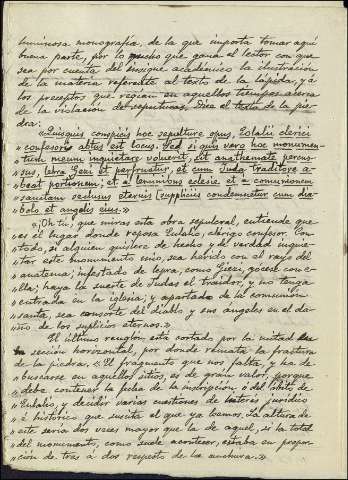 luminosa monografía, de la que importa tomar aquí
buena parte, por lo mucho que gana el lector con que
sea por cuenta del insigne académico la ilustración
de la materia referente al texto de la lápida, y á
los preceptos que regían en aquellos tiempos acerca
de la violacion de sepulturas. Dice el texto de la pie-
dra:
"Quisquis conspicis hoc sepulture opus, Eolalii clerici
confesoris abtus est locus. Sed si quis vero hoc monumen-
tum meum inquietare voluerit, sit anathemate percus-
sus, lepra Gezi et perfruatur, et cum Juda traditore a-
beat portionem; et a leminibus eclesie et a comunionem
sanctam seclusus eternis supplicis condemnetur cum dia-
bolo et angelis eius."
"¡Oh tu, que miras esta obra sepulcral, entiende que
es el lugar donde reposa Eulalio, clérigo confesor. Con
todo, si alguien quisiere de hecho y de verdad inquie-
tar este monumento mio, sea herido con el rayo del
anatema; infestado de lepra, como Giezi, gócese con e-
lla; haya la suerte de Judas el traidor, y no tenga
entrada en la iglesia; y apartado de la comunion
santa, sea consorte del diablo y sus angeles en el da-
ño de los suplicios eternos."
El último renglon está cortado por la mitad
en seccion horizontal, por donde remata la fractura
de la piedra. "El fragmento que nos falta, y ha de
buscarse en aquellos sitios, es de gran valor, porque
debe contener la fecha de la inscripcion ó del óbito de
Eulalio, y decidir varias cuestiones de interés jurídico
é histórico que suscita el que ya leemos. La altura de
este seria dos veces mayor que la de aquel, si la total
del monumento, como suele acontecer, estaba en propor-
ción de tres á dos respecto de la anchura."